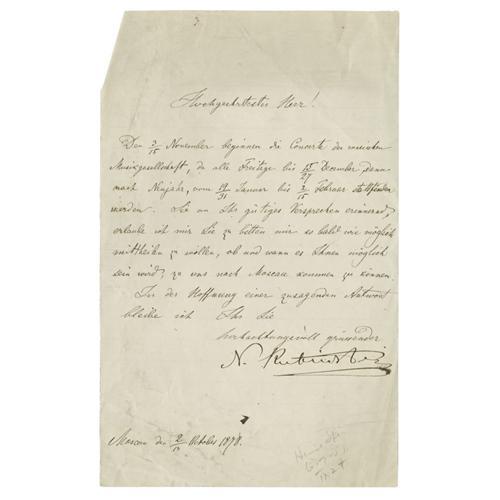 Hochgeehrtester Herr!
Den 3/15 November beginnen die Concerte der russischen
Musikgesellschaft, die alle Freitage bis 15/27 December, dann
nach Neujahr, vom 19/31 Januar bis 2/15 Februar stattfinden
werden. Sie an Ihr gütiges Versprechen erinnernd,
erlaube ich mir Sie zu bitten mir so bald wie möglich
mittheilen zu wollen, ob und wann es Ihnen möglich
sein wird, zu uns nach Moscau kommen zu können.
In der Hoffnung einer zusagenden Antwort
bleibe ich Ihr Sie
hochachtungsvoll grüssender
N. Rubinstein
Moscau den October 1878.